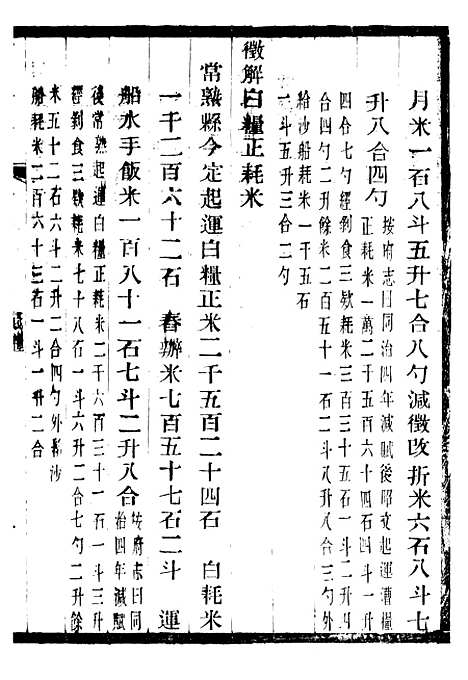 月米一石八斗五升七合八勺減徵改折米六石八斗七
升八合四勺
按府志曰同治四年減賦後昭文起運漕糧
正耗米一萬二千五百六十四石四斗一升
四合七勺經剝食三欵耗米三百三十一石一斗二升四
合四勺二升餘米二百五十一石二斗八升八合三勺外
給沙船耗米一千五石
一斗五升三合二勺
徵解白糧正耗米
常熟縣今定起運白糧正米二千五百二十四石 白耗米
一千二百六十二石 舂辦米七百五十七石二斗 運
船水手飯米一百八十一石七斗二升八合
按府志曰同
治四年減賦
後常熟起運白糧正耗米二千六百三十一石一斗三升
經剝食三欵耗米七十八石一斗六升二合七勺二升餘
米五十二石六斗二升二合四勺外給沙
船耗米二百六十三石一斗一升二合